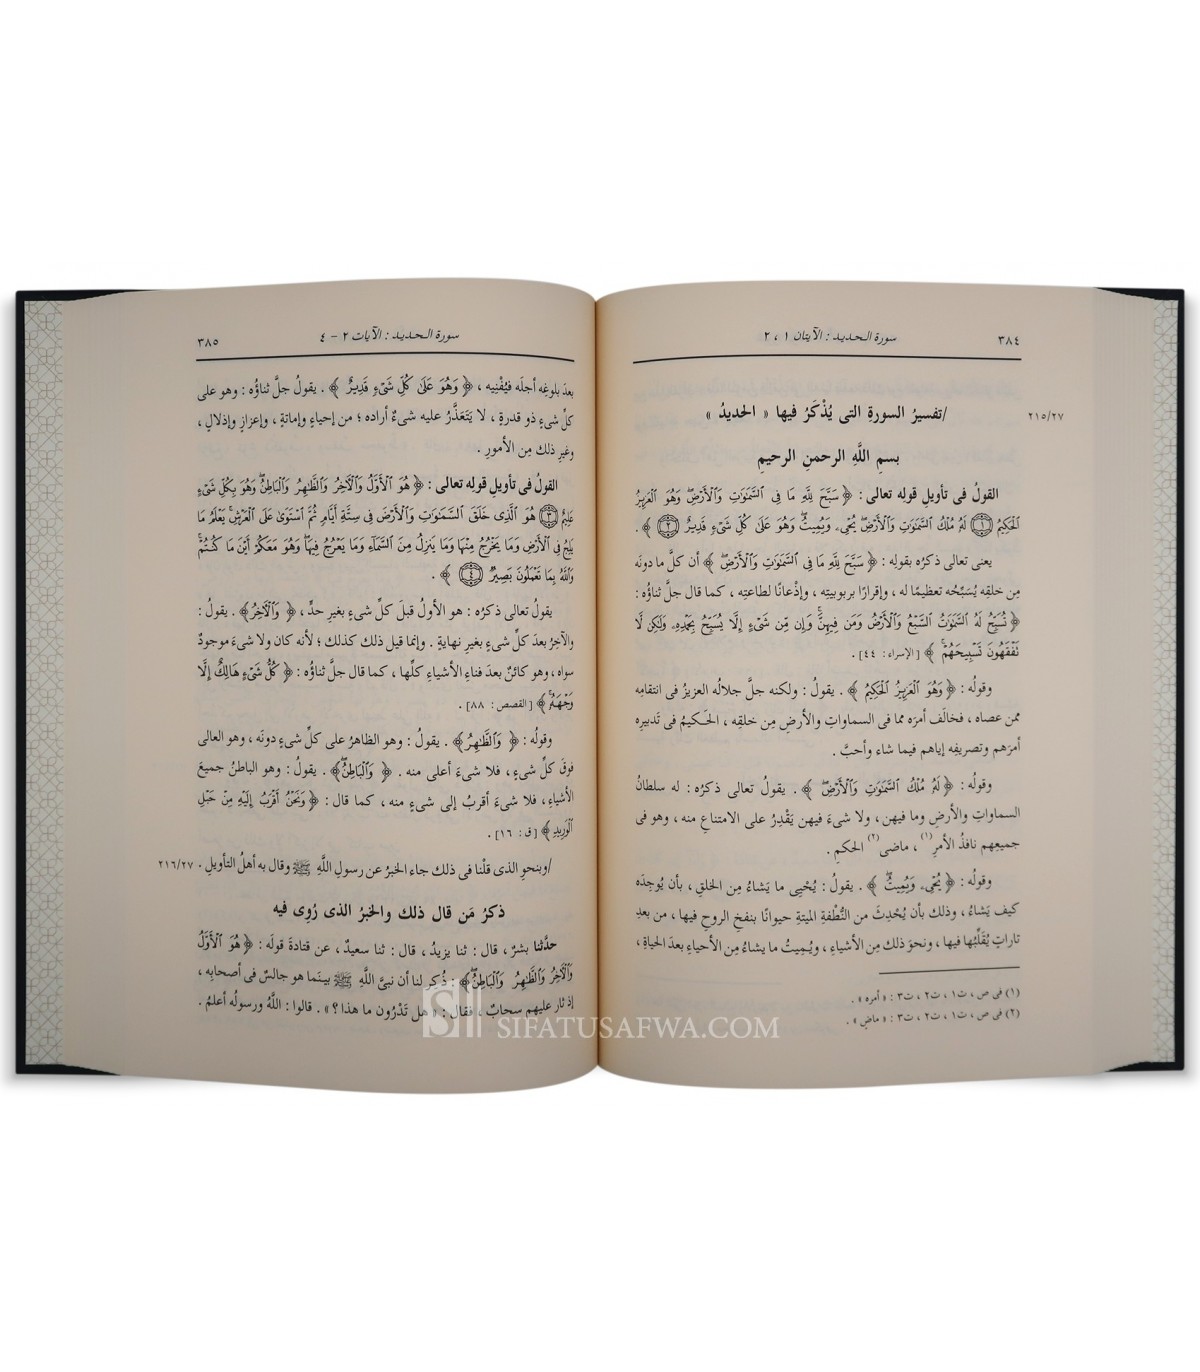 ٣٨٤
سورة الحديد : الآيتان ١ ، ٢
٢١٥/٢٧
/تفسيرُ السورةِ التى يُذْكَرُ فيها « الحديدُ »
بسمِ اللَّهِ الرحمنِ الرحيمِ
القولُ فى تأويلِ قولِه تعالى : ﴿ سَبَّحَ لِلَّهِ مَا فِى السَّمَٰوَٰتِ وَالْأَرْضِۖ وَهُوَ الْعَزِيزُ
الْحَكِيمُ ١ لَهُۥ مُلْكُ السَّمَٰوَٰتِ وَالْأَرْضِۖ يُحْىِۦ وَيُمِيتُۖ وَهُوَ عَلَىٰ كُلِّ شَىْءٍ قَدِيرٌ ٢ ﴾ .
يعنى تعالى ذكرُه بقولِه : ﴿ سَبَّحَ لِلَّهِ مَا فِى السَّمَٰوَٰتِ وَالْأَرْضِۖ ﴾ أن كلَّ ما دونَه
مِن خلقِه يُسَبِّحُه تعظيمًا له ، وإقرارًا بربوبيتِه ، وإذْعانًا لطاعتِه ، كما قال جلَّ ثناؤُه :
﴿ تُسَبِّحُ لَهُ السَّمَٰوَٰتُ السَّبْعُ وَالْأَرْضُ وَمَن فِيهِنَّۚ وَإِن مِّن شَىْءٍ إِلَّا يُسَبِّحُ بِحَمْدِهِۦ وَلَٰكِن لَّا
تَفْقَهُونَ تَسْبِيحَهُمْۚ ﴾ [الإسراء : ٤٤] .
وقولُه : ﴿ وَهُوَ الْعَزِيزُ الْحَكِيمُ ﴾ . يقولُ : ولكنه جلَّ جلالُه العزيزُ فى انتقامِه
ممن عصاه ، فخالَف أمرَه مما فى السماواتِ والأرضِ مِن خلقِه ، الحَكيمُ فى تَدبيرِه
أمرَهم وتصريفِه إياهم فيما شاء وأحبَّ .
وقولُه : ﴿ لَهُۥ مُلْكُ السَّمَٰوَٰتِ وَالْأَرْضِۖ ﴾ . يقولُ تعالى ذكرُه : له سلطانُ
السماواتِ والأرضِ وما فيهن ، ولا شىءَ فيهن يَقْدِرُ على الامتناعِ منه ، وهو فى
جميعِهم نافذُ الأمرِ (١) ، ماضى (٢) الحكمِ .
وقولُه : ﴿ يُحْىِۦ وَيُمِيتُۖ ﴾ . يقولُ : يُحْيِى ما يَشاءُ مِن الخلقِ ، بأن يُوجِدَه
كيف يَشاءُ ، وذلك بأن يُحْدِثَ من النُّطْفةِ الميتةِ حيوانًا بنفخِ الروحِ فيها ، من بعدِ
تاراتٍ يُقَلِّبُها فيها ، ونحوَ ذلك مِن الأشياءِ ، ويُميتُ ما يشاءُ مِن الأحياءِ بعدَ الحياةِ ،
(١) فى ص ، ت١ ، ت٢ ، ت٣ : « أمره » .
(٢) فى ص ، ت١ ، ت٢ ، ت٣ : « ماض » .
سورة الحديد : الآيات ٢ – ٤
٣٨٥
بعدَ بلوغِه أجلَه فيُفْنِيه ، ﴿ وَهُوَ عَلَىٰ كُلِّ شَىْءٍ قَدِيرٌ ﴾ . يقولُ جلَّ ثناؤُه : وهو على
كلِّ شىءٍ ذو قدرةٍ ، لا يَتَعَذَّرُ عليه شىءٌ أراده ؛ مِن إحياءٍ وإماتةٍ ، وإعزازٍ وإذلالٍ ،
وغيرِ ذلك مِن الأمورِ .
القولُ فى تأويلِ قولِه تعالى : ﴿ هُوَ الْأَوَّلُ وَالْآخِرُ وَالظَّٰهِرُ وَالْبَاطِنُۖ وَهُوَ بِكُلِّ شَىْءٍ
عَلِيمٌ ٣ هُوَ الَّذِى خَلَقَ السَّمَٰوَٰتِ وَالْأَرْضَ فِى سِتَّةِ أَيَّامٍ ثُمَّ اسْتَوَىٰ عَلَى الْعَرْشِۚ يَعْلَمُ مَا
يَلِجُ فِى الْأَرْضِ وَمَا يَخْرُجُ مِنْهَا وَمَا يَنزِلُ مِنَ السَّمَآءِ وَمَا يَعْرُجُ فِيهَاۖ وَهُوَ مَعَكُمْ أَيْنَ مَا كُنتُمْۚ
وَاللَّهُ بِمَا تَعْمَلُونَ بَصِيرٌ ٤ ﴾ .
يقولُ تعالى ذكرُه : هو الأولُ قبلَ كلِّ شىءٍ بغيرِ حدٍّ ، ﴿ وَالْآخِرُ ﴾ . يقولُ :
والآخِرُ بعدَ كلِّ شىءٍ بغيرِ نهايةٍ . وإنما قيل ذلك كذلك ؛ لأنه كان ولا شىءَ موجودٌ
سواه ، وهو كائنٌ بعدَ فناءِ الأشياءِ كلِّها ، كما قال جلَّ ثناؤُه : ﴿ كُلُّ شَىْءٍ هَالِكٌ إِلَّا
وَجْهَهُۥۚ ﴾ [القصص : ٨٨] .
وقولُه : ﴿ وَالظَّٰهِرُ ﴾ . يقولُ : وهو الظاهرُ على كلِّ شىءٍ دونَه ، وهو العالى
فوقَ كلِّ شىءٍ ، فلا شىءَ أعلى منه . ﴿ وَالْبَاطِنُۖ ﴾ . يقولُ : وهو الباطنُ جميعَ
الأشياءِ ، فلا شىءَ أقربُ إلى شىءٍ منه ، كما قال : ﴿ وَنَحْنُ أَقْرَبُ إِلَيْهِ مِنْ حَبْلِ
الْوَرِيدِ ﴾ [ق : ١٦] .
/وبنحوِ الذى قلْنا فى ذلك جاء الخبرُ عن رسولِ اللَّهِ ﷺ وقال به أهلُ التأويلِ . ٢١٦/٢٧
ذكرُ مَن قال ذلك والخبرُ الذى رُوِى فيه
حدَّثنا بشرٌ ، قال : ثنا يزيدُ ، قال : ثنا سعيدٌ ، عن قتادةَ قولَه : ﴿ هُوَ الْأَوَّلُ
وَالْآخِرُ وَالظَّٰهِرُ وَالْبَاطِنُۖ ﴾ : ذُكِر لنا أن نبىَّ اللَّهِ ﷺ بينَما هو جالسٌ فى أصحابِه ،
إذ ثار عليهم سحابٌ ، فقال : « هل تَدْرُون ما هذا ؟ » . قالوا : اللَّهُ ورسولُه أعلمُ .
SIFATUSAFWA.COM